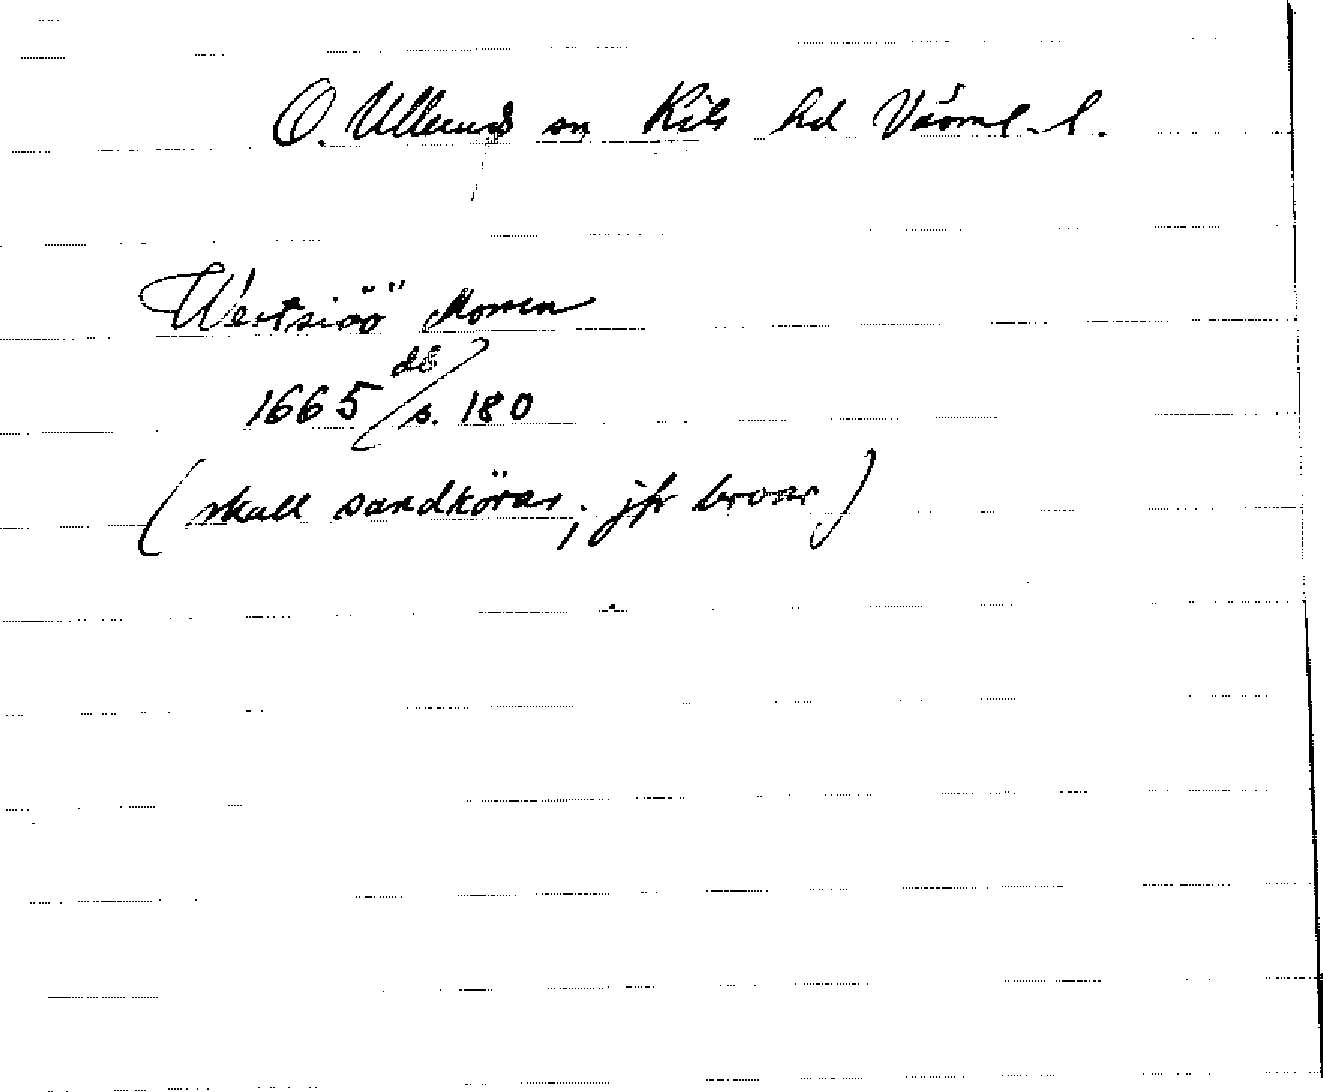 Ö. Ullerud sn Kils hd Värml. l.
Westsiöö Monen
1665 db/s. 180
(skall sandköras, jfr broar)